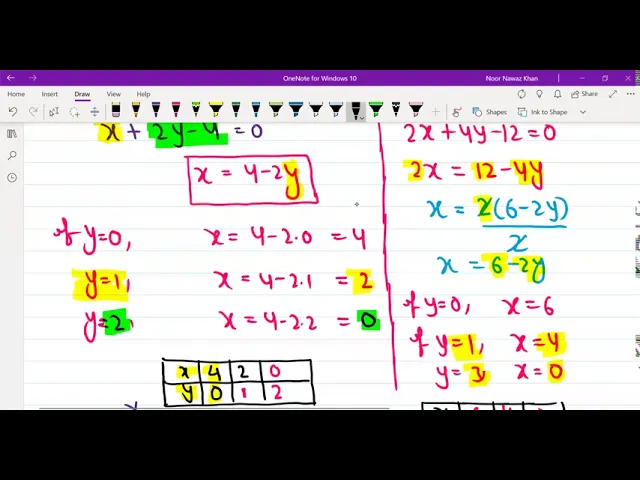 OneNote for Windows 10
Noor Nawaz Khan
File Home Insert Draw View Help
Share
Shapes
Ink to Shape
x + 2y-4 = 0
x = 4-2y
if y=0, x = 4-2.0 = 4
y=1, x = 4-2.1 = 2
y=2, x = 4-2.2 = 0
x 4 2 0
y 0 1 2
2x+4y-12=0
2x = 12-4y
x = 2(6-2y)
2
x = 6-2y
if y=0, x=6
if y=1, x=4
y=3, x=0